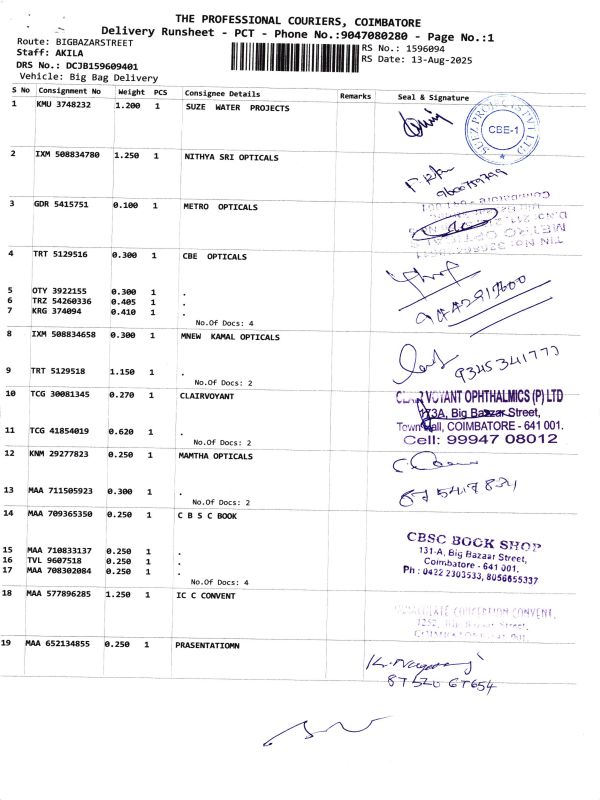 THE PROFESSIONAL COURIERS, COIMBATORE
Delivery Runsheet - PCT - Phone No.:9047080280 - Page No.:1
Route: BIGBAZARSTREET
RS No.: 1596094
Staff: AKILA
RS Date: 13-Aug-2025
DRS No.: DCJB159609401
Vehicle: Big Bag Delivery
S No Consignment No Weight PCS Consignee Details Remarks Seal & Signature
1 KMU 3748232 1.200 1 SUZE WATER PROJECTS
SUEZ PROJECTS PVT LTD
CBE-1
2 IXM 508834780 1.250 1 NITHYA SRI OPTICALS
3 GDR 5415751 0.100 1 METRO OPTICALS
METRO OPTICALS
4 TRT 5129516 0.300 1 CBE OPTICALS
5 OTY 3922155 0.300 1 .
6 TRZ 54260336 0.405 1 .
7 KRG 374094 0.410 1 .
No.Of Docs: 4
8 IXM 508834658 0.300 1 MNEW KAMAL OPTICALS
9345341773
9 TRT 5129518 1.150 1 .
No.Of Docs: 2
10 TCG 30081345 0.270 1 CLAIRVOYANT
CLAIRVOYANT OPHTHALMICS (P) LTD
173A, Big Bazaar Street,
Town Hall, COIMBATORE - 641 001.
Cell: 99947 08012
11 TCG 41854019 0.620 1 .
No.Of Docs: 2
12 KNM 29277823 0.250 1 MAMTHA OPTICALS
13 MAA 711505923 0.300 1 .
No.Of Docs: 2
14 MAA 709365350 0.250 1 C B S C BOOK
CBSC BOOK SHOP
131-A, Big Bazaar Street,
Coimbatore - 641 001.
Ph : 0422 2303533, 8056655337
15 MAA 710833137 0.250 1 .
16 TVL 9607518 0.250 1 .
17 MAA 708302084 0.250 1 .
No.Of Docs: 4
18 MAA 577896285 1.250 1 IC C CONVENT
IMMACULATE CONCEPTION CONVENT,
19 MAA 652134855 0.250 1 PRASENTATIOMN
87520 67654